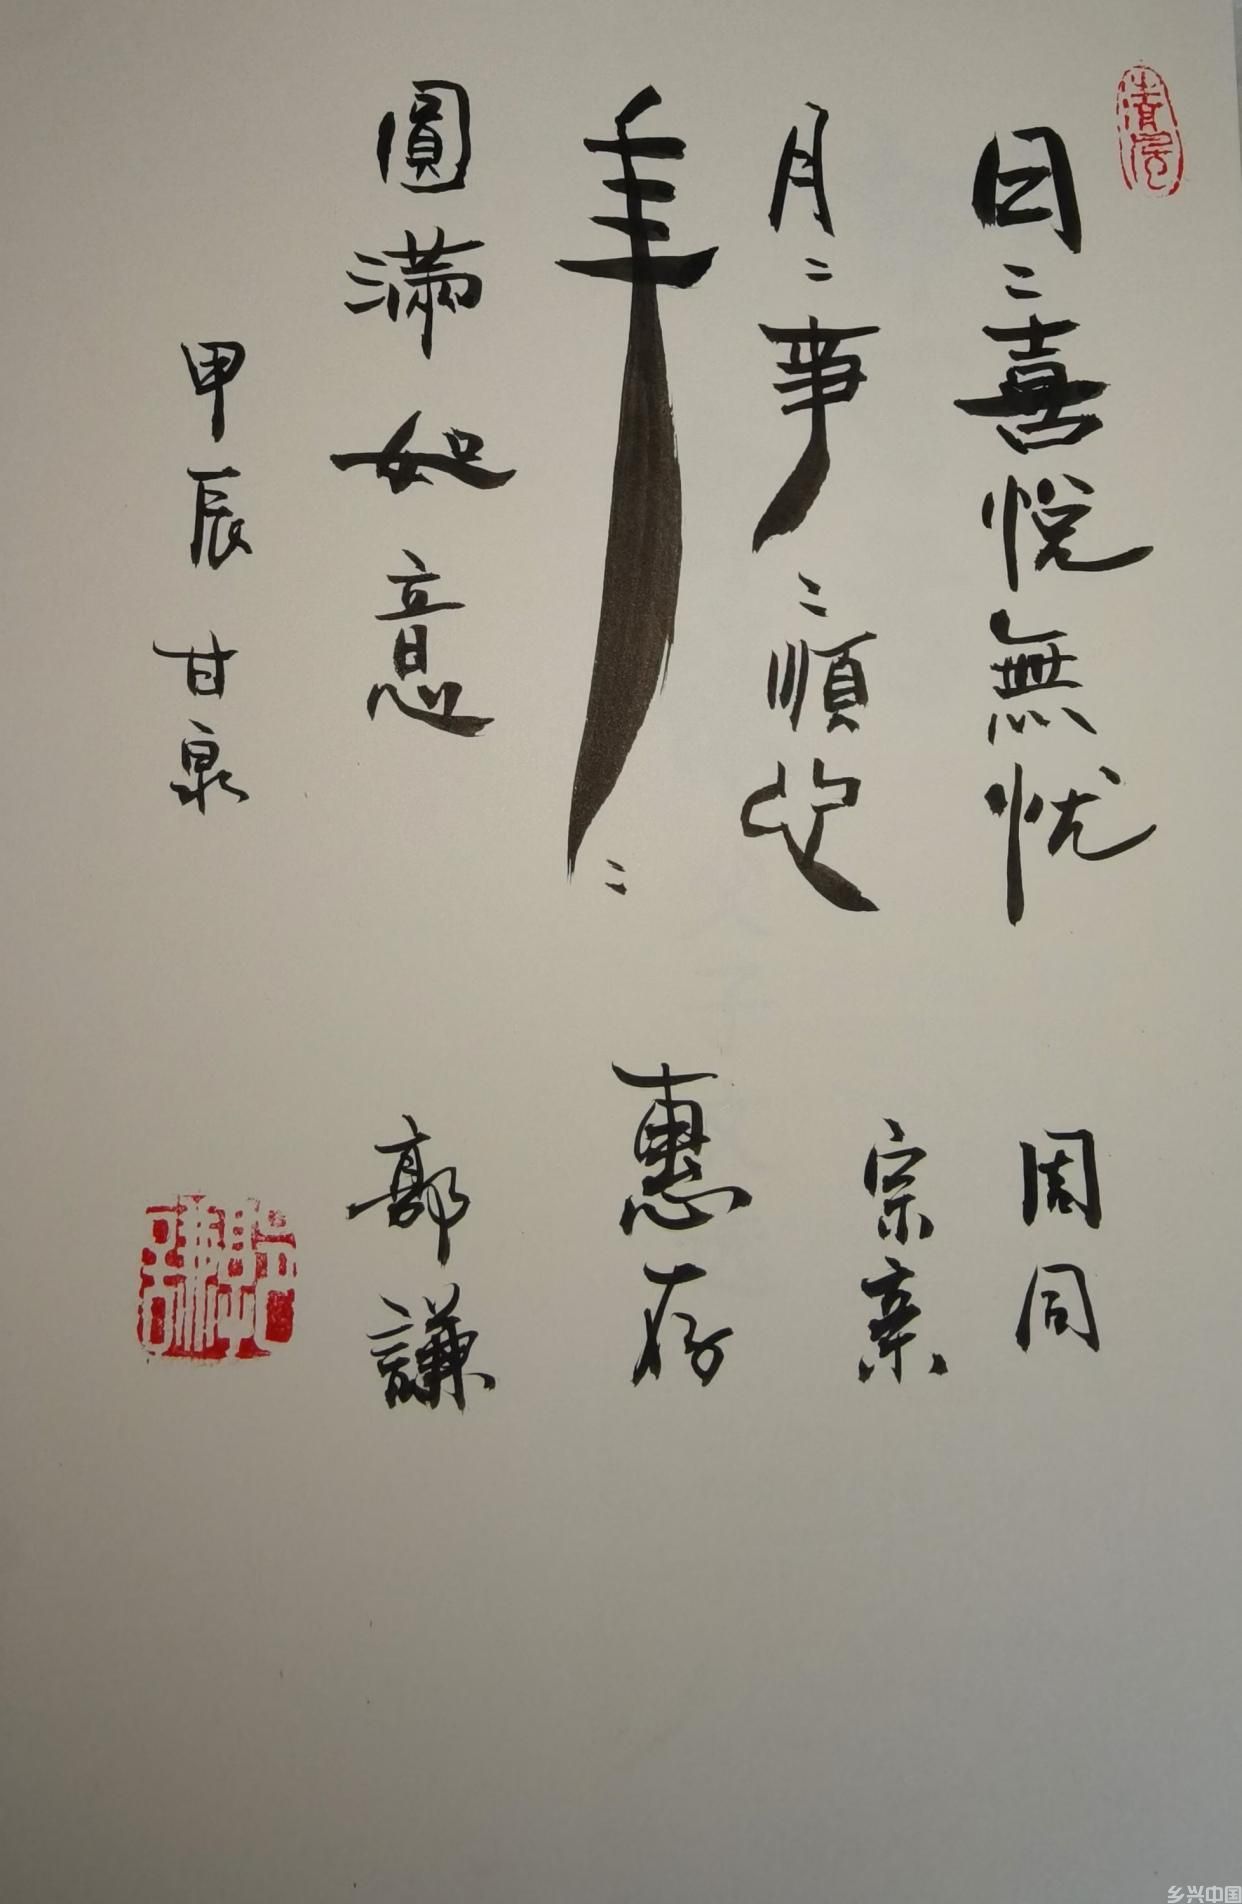 清風
日〻喜悅無忧
月〻事〻順心
年〻
圓滿如意
甲辰 甘泉
周同
宗亲
惠存
郭謙
乡兴中国